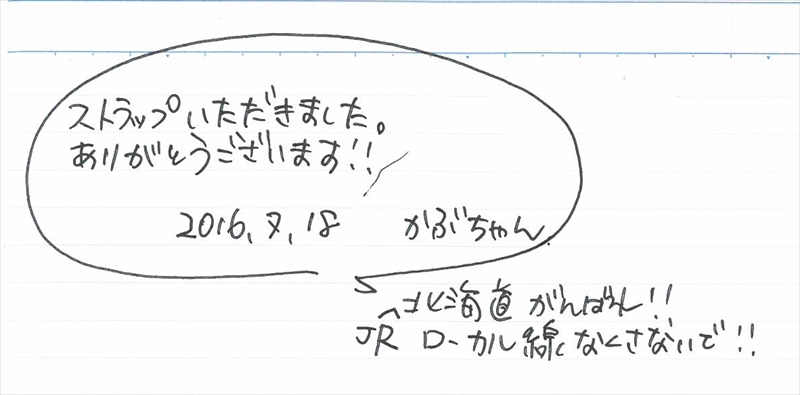 ストラップいただきました。
ありがとうございます!!
2016.7.18 かぶちゃん
北海道がんばれ!!
JR ローカル線なくさないで!!